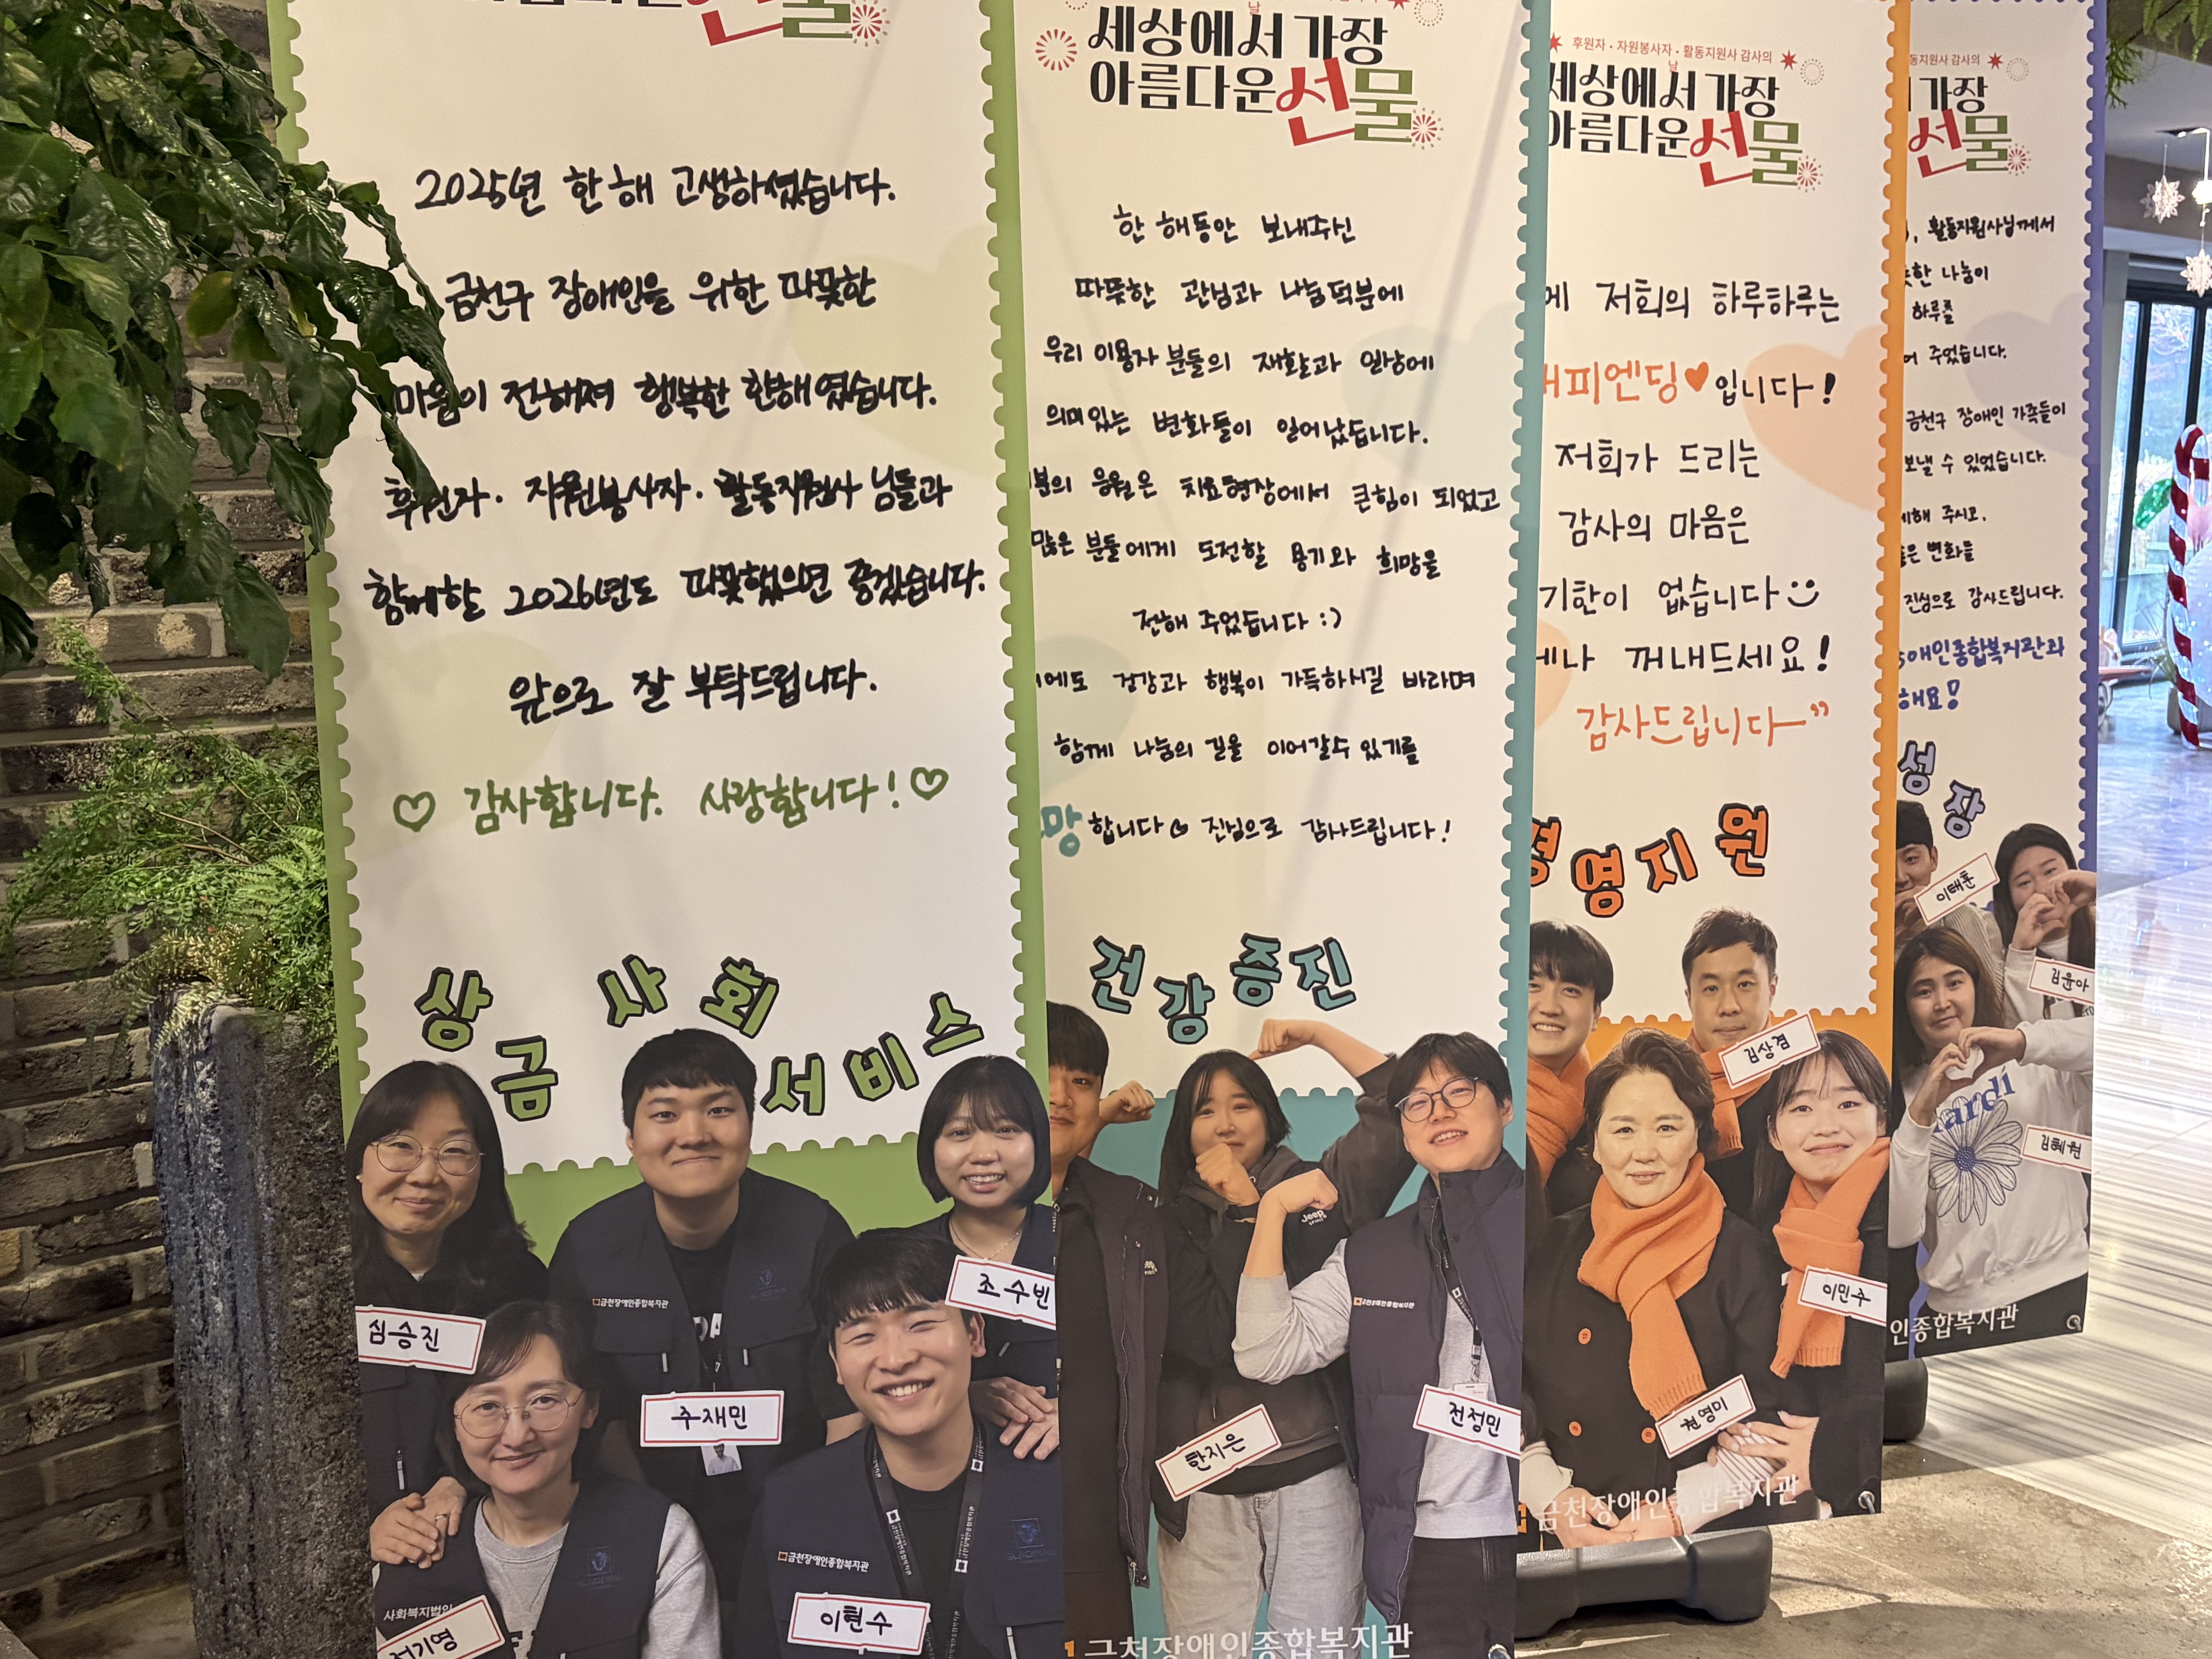 선물
2025년 한 해 고생하셨습니다.
금천구 장애인을 위한 따뜻한
마음이 전해져 행복한 한해였습니다.
후원자 · 자원봉사자 · 활동지원사 님들과
함께할 2026년도 따뜻했으면 좋겠습니다.
앞으로 잘 부탁드립니다.
♡ 감사합니다. 사랑합니다! ♡
상금 사회서비스
심승진
주재민
조수빈
이현수
금천장애인종합복지관
금천장애인종합복지관
사회복지법인
세상에서 가장
아름다운 선물
한 해동안 보내주신
따뜻한 관심과 나눔덕분에
우리 이용자분들의 재활과 일상에
의미있는 변화들이 일어났습니다.
분의 응원은 치료현장에서 큰힘이 되었고
많은 분들에게 도전할 용기와 희망을
전해 주었습니다 :)
에도 건강과 행복이 가득하시길 바라며
함께 나눔의 길을 이어갈수 있기를
망합니다 진심으로 감사드립니다!
건강증진
Jeep
한지은
전정민
금천장애인종합복지관
금천장애인종합복지관
후원자 · 자원봉사자 · 활동지원사 감사의
날
세상에서 가장
아름다운 선물
에 저희의 하루하루는
해피엔딩♥입니다!
저희가 드리는
감사의 마음은
기한이 없습니다
나 꺼내드세요!
감사드립니다~"
경영지원
김상겸
이민주
권영미
금천장애인종합복지관
동지원사 감사의
가장
선물
, 활동지원사님께서
뜻한 나눔이
하루를
어 주었습니다.
금천구 장애인 가족들이
보낼 수 있었습니다.
해 주시고,
은 변화를
진심으로 감사드립니다.
애인종합복지관와
해요!
성장
이태훈
김윤아
김혜원
ardi
인종합복지관